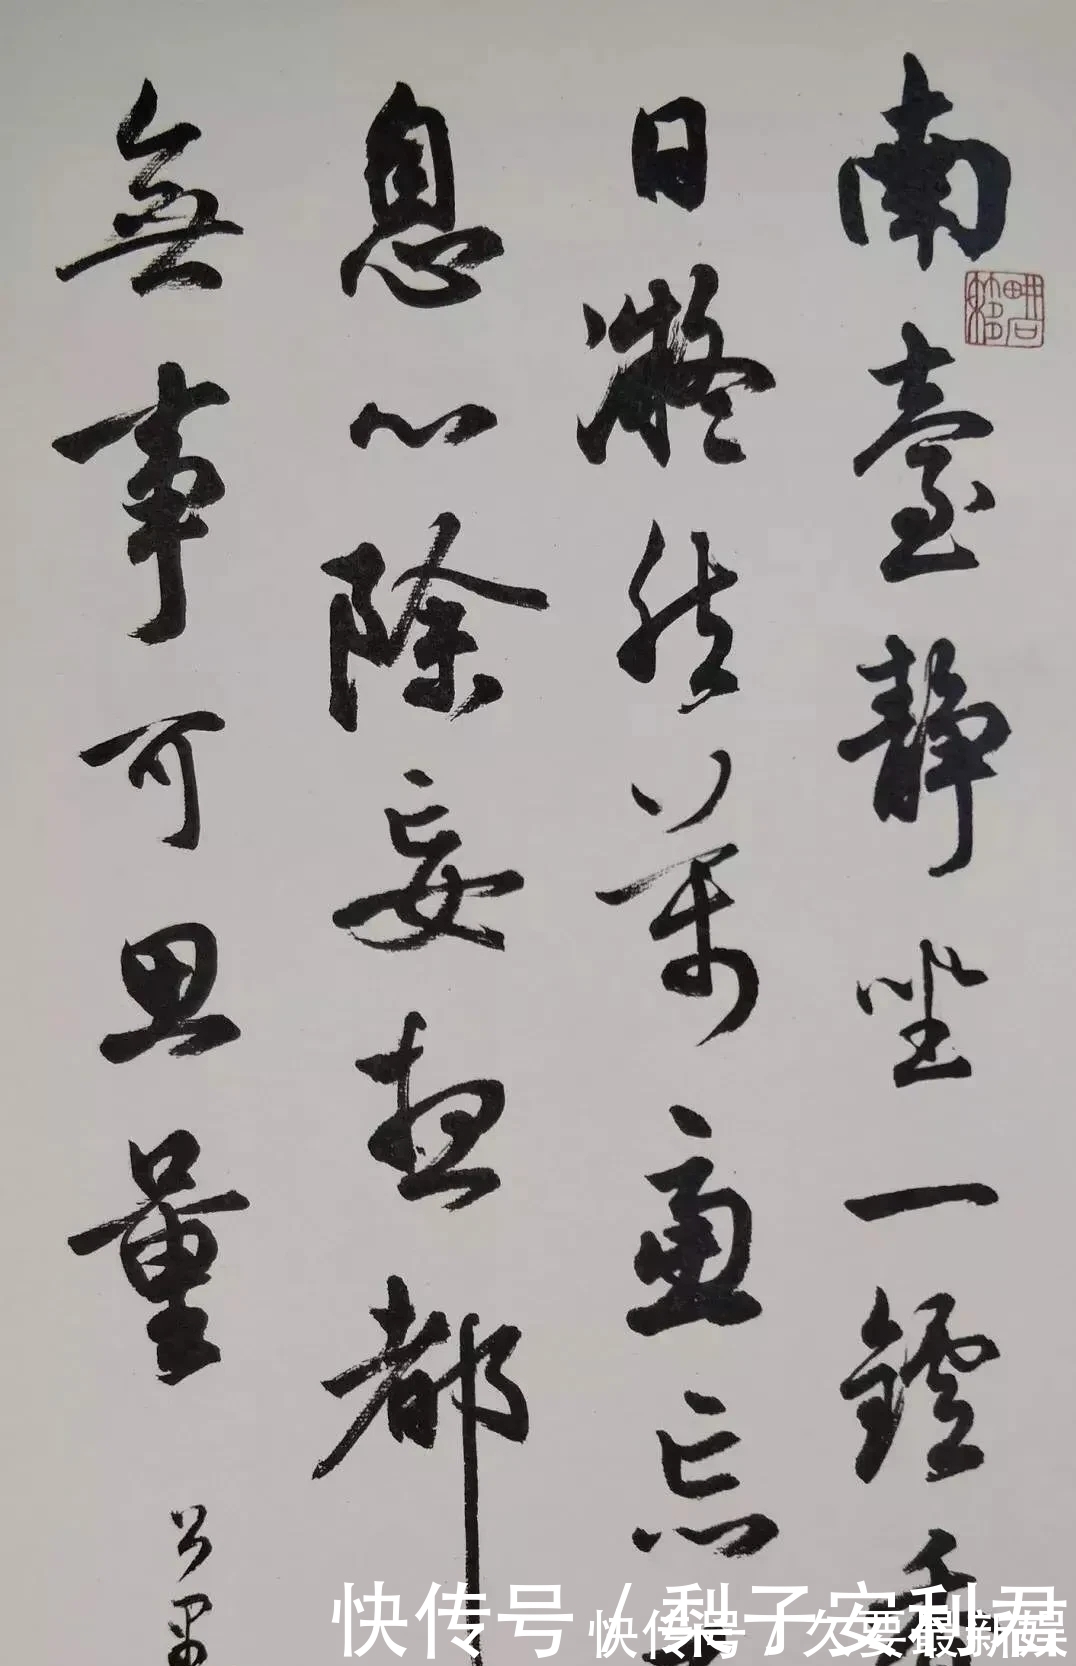 南臺靜坐一鑪香
日凝然萬慮忘
息心除妄想都
無事可思量
快传号 / 梨子安利君
快传号 / 久要最新